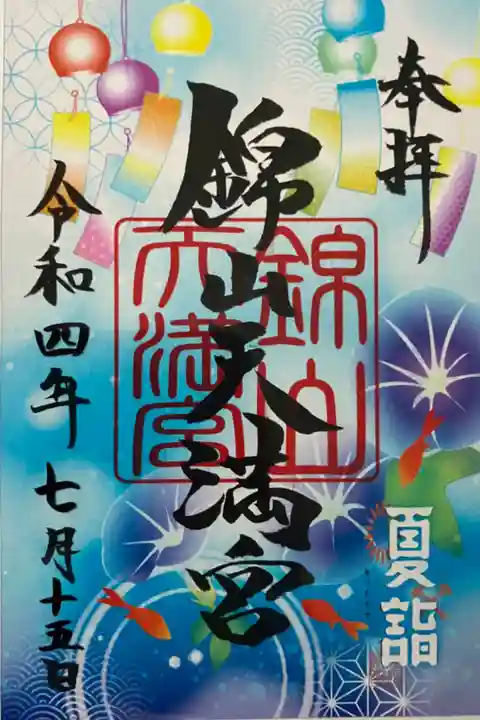 奉拝
錦山天満宮
錦山
天満宮
令和四年 七月十五日
夏詣